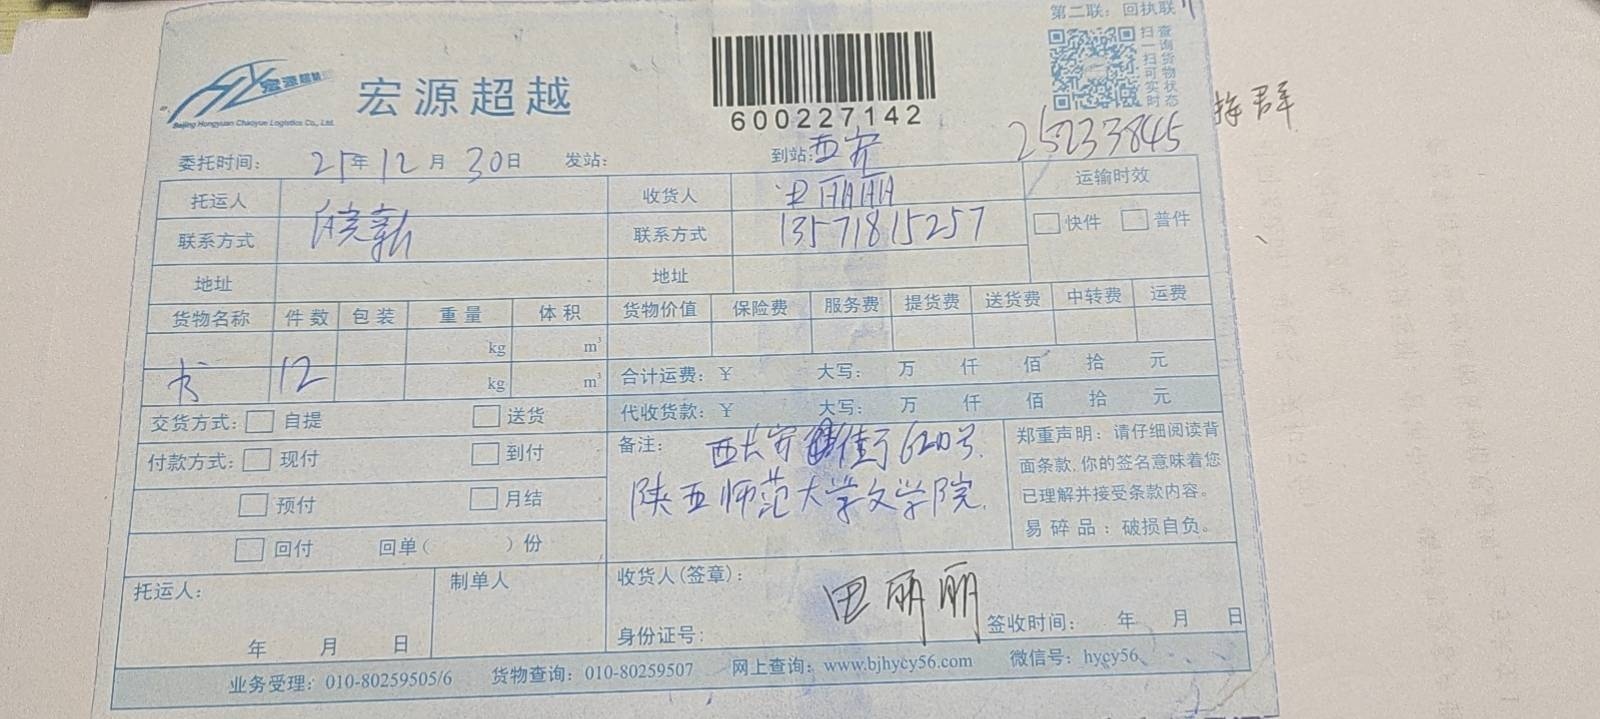 第二联：回执联
宏源超越
宏源超越
Beijing Hongyuan Chaoyue Logistics Co., Ltd.
600227142
扫一扫可实时
查询货物状态
25233845
群
委托时间： 21年12月30日 发站： 到站：西安
托运人 收货人 运输时效
联系方式 联系方式 13571815257 快件 普件
地址 地址
货物名称 件数 包装 重量 体积 货物价值 保险费 服务费 提货费 送货费 中转费 运费
kg m³
书 12 kg m³ 合计运费：¥ 大写： 万 仟 佰 拾 元
交货方式： 自提 送货 代收货款：¥ 大写： 万 仟 佰 拾 元
付款方式： 现付 到付 备注： 西长安街620号
预付 月结 陕西师范大学文学院
回付 回单（ ）份
郑重声明：请仔细阅读背
面条款，你的签名意味着您
已理解并接受条款内容。
易碎品：破损自负。
托运人： 制单人 收货人(签章)： 田丽丽
年 月 日 身份证号： 签收时间： 年 月 日
业务受理：010-80259505/6 货物查询：010-80259507 网上查询：www.bjhycy56.com 微信号：hycy56